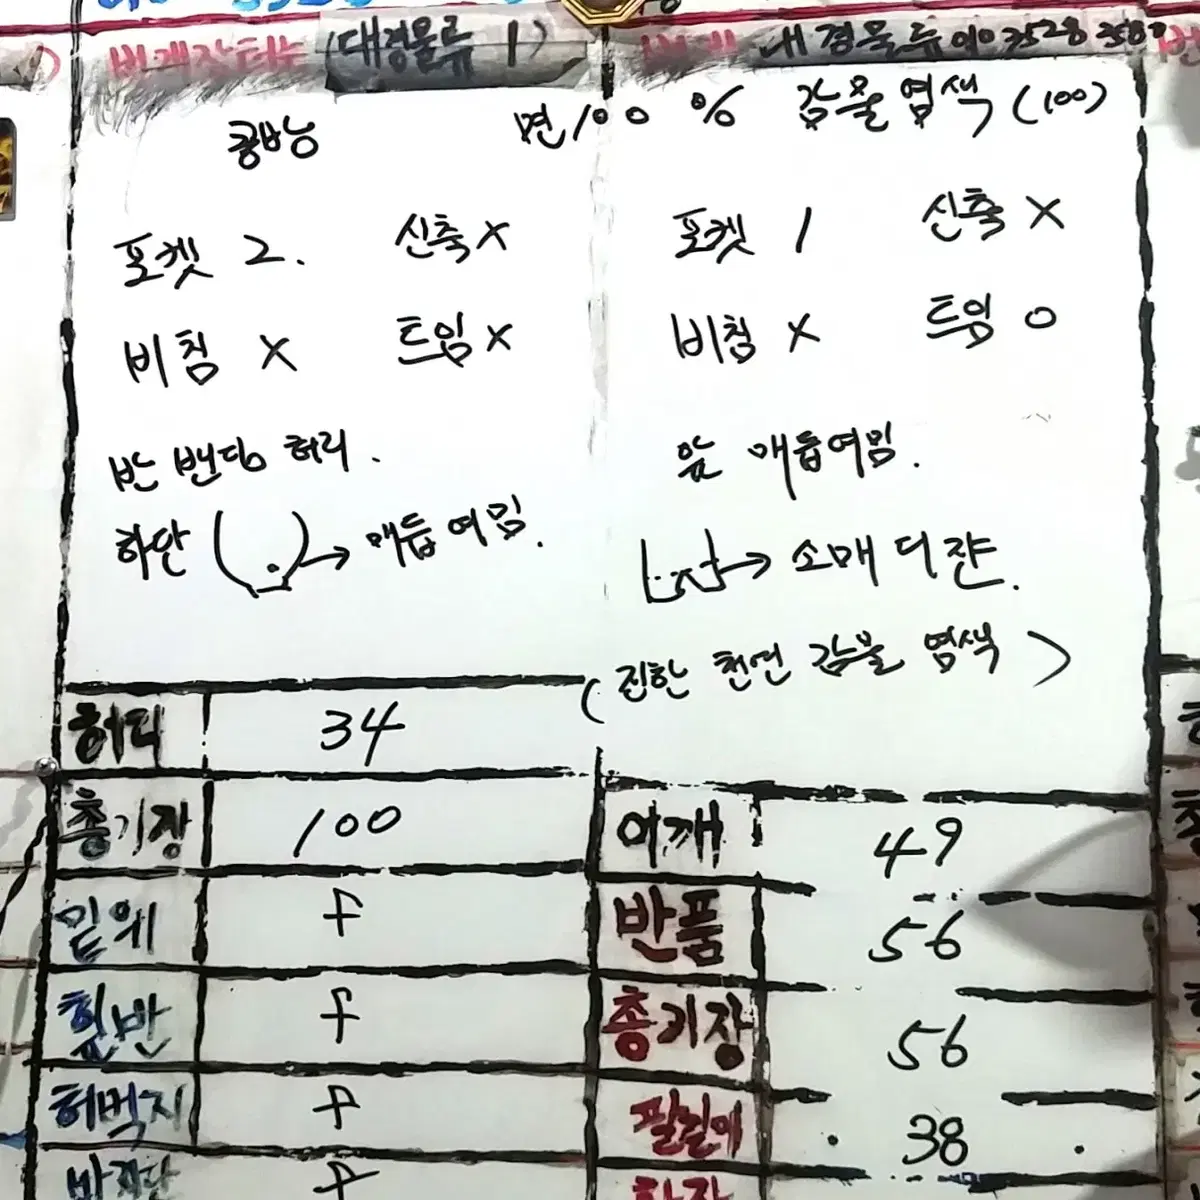 번개장터는 (대경물류 1)
번개 대경물류 010 3528 3587
콩바농
면100 % 감물염색 (100)
포켓 2. 신축 X
비침 X 트임 X
반 밴딩 허리.
하단 ( ) → 매듭여밈.
포켓 1 신축 X
비침 X 트임 O
앞 매듭여밈.
→ 소매 디쟌.
(진한 천연 감물 염색)
허리 34
총기장 100
밑위 f
힢반 f
허벅지 f
바지단 f
어깨 49
반품 56
총기장 56
팔길이 38
화장